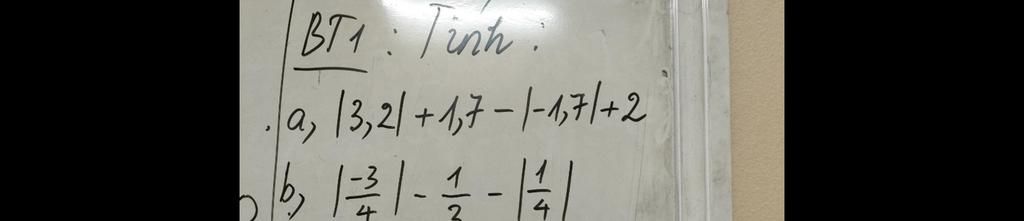 BT1 : Tính :
a, |3,2| + 1,7 - |-1,7| + 2
b, |\frac{-3}{4}| - \frac{1}{2} - |\frac{1}{4}|